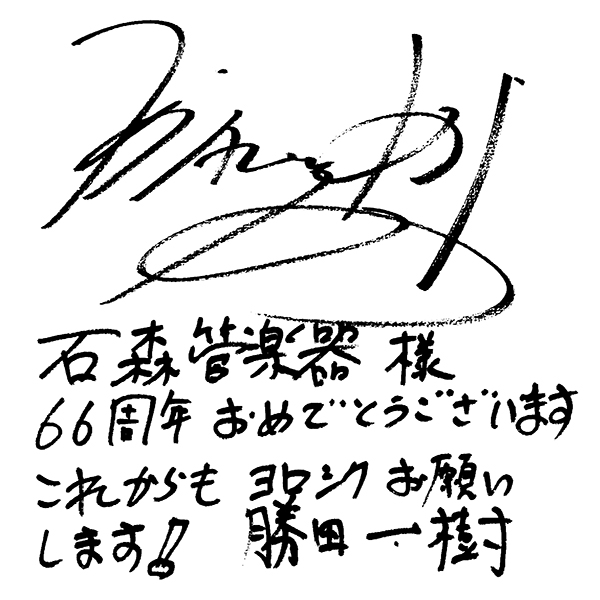 石森管楽器 様
66周年 おめでとうございます
これからも ヨロシク お願い
します!! 勝田 一樹